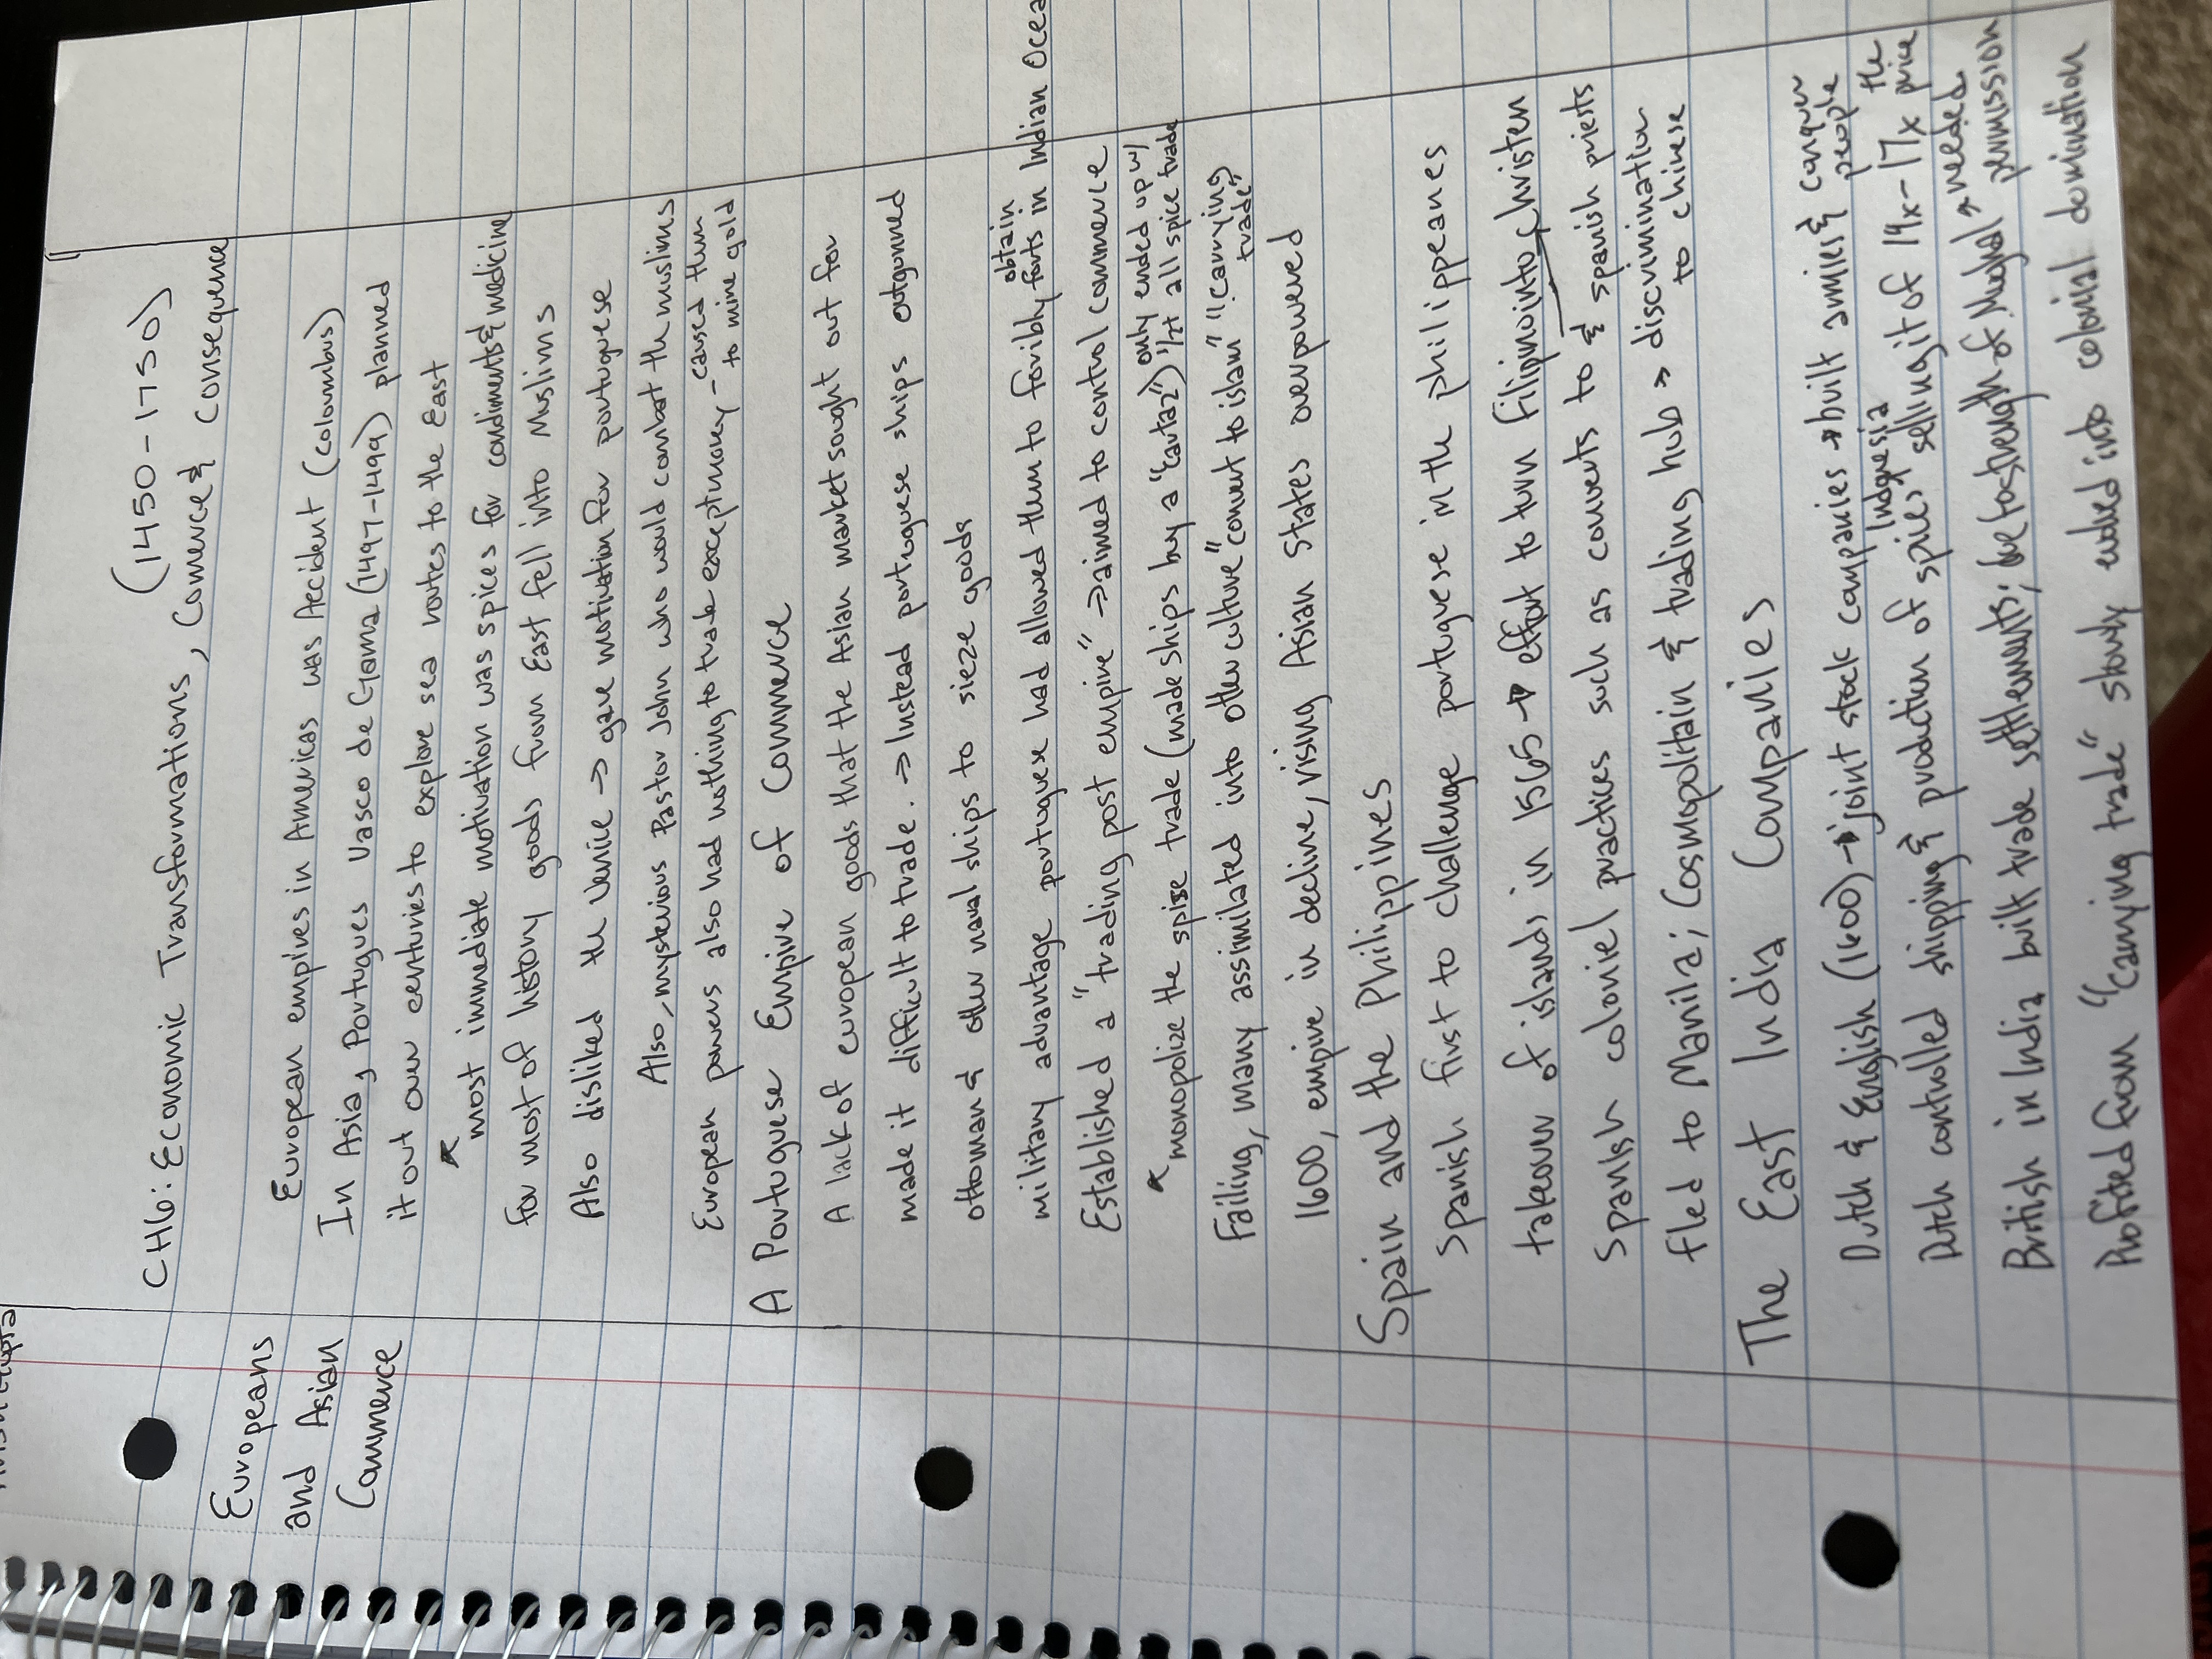 (1450-1750)
CH6: Economic Transformations, Commerce & Consequence
Europeans
and Asian
Commerce
European empires in Americas was Accident (Coloumbus)
In Asia, Portugues Vasco de Gama (1497-1499) planned
it out over centuries to explore sea routes to the East
most immediate motivation was spices for condiments & medicine
for most of history goods from East fell into Muslims
Also disliked the Venice → gave motivation for portuguese
Also, mysterious Pastor John who would combat the muslims
European powers also had nothing to trade except money - caused them to mine gold
A Portuguese Empire of Commerce
A lack of european goods that the Asian market sought out for
made it difficult to trade. → Instead portuguese ships outgunned
ottoman & other naval ships to sieze goods
military advantage portuguese had allowed them to foribly obtain forts in Indian Ocea
Established a "trading post empire" → aimed to control commerce
monopolize the spise trade (made ships buy a "cartaz") only ended up w/ 1/2t all spice trade
Failing, many assimilated into other culture "convert to islam" "(carrying trade"
1600, empire in decline, rising Asian States overpowered
Spain and the Philippines
Spanish first to challenge portugese in the philippeanes
takeover of islands in 1565 → effort to turn Filipino into Christen
Spanish coloniel practices such as converts to & spanish priets
fled to Manila; Cosmopolitain & trading hub → discrimination to chinese
The East India Companies
Dutch & English (1600) → joint stock companies → built armies & conquer people
Dutch controlled shipping & production of spices Indonesia selling it of 14x-17x the price
British in India built trade settlements; bc of strength of Mughal ↗ needed permission
Profited from "carrying trade" slowly evolved into colonial domination